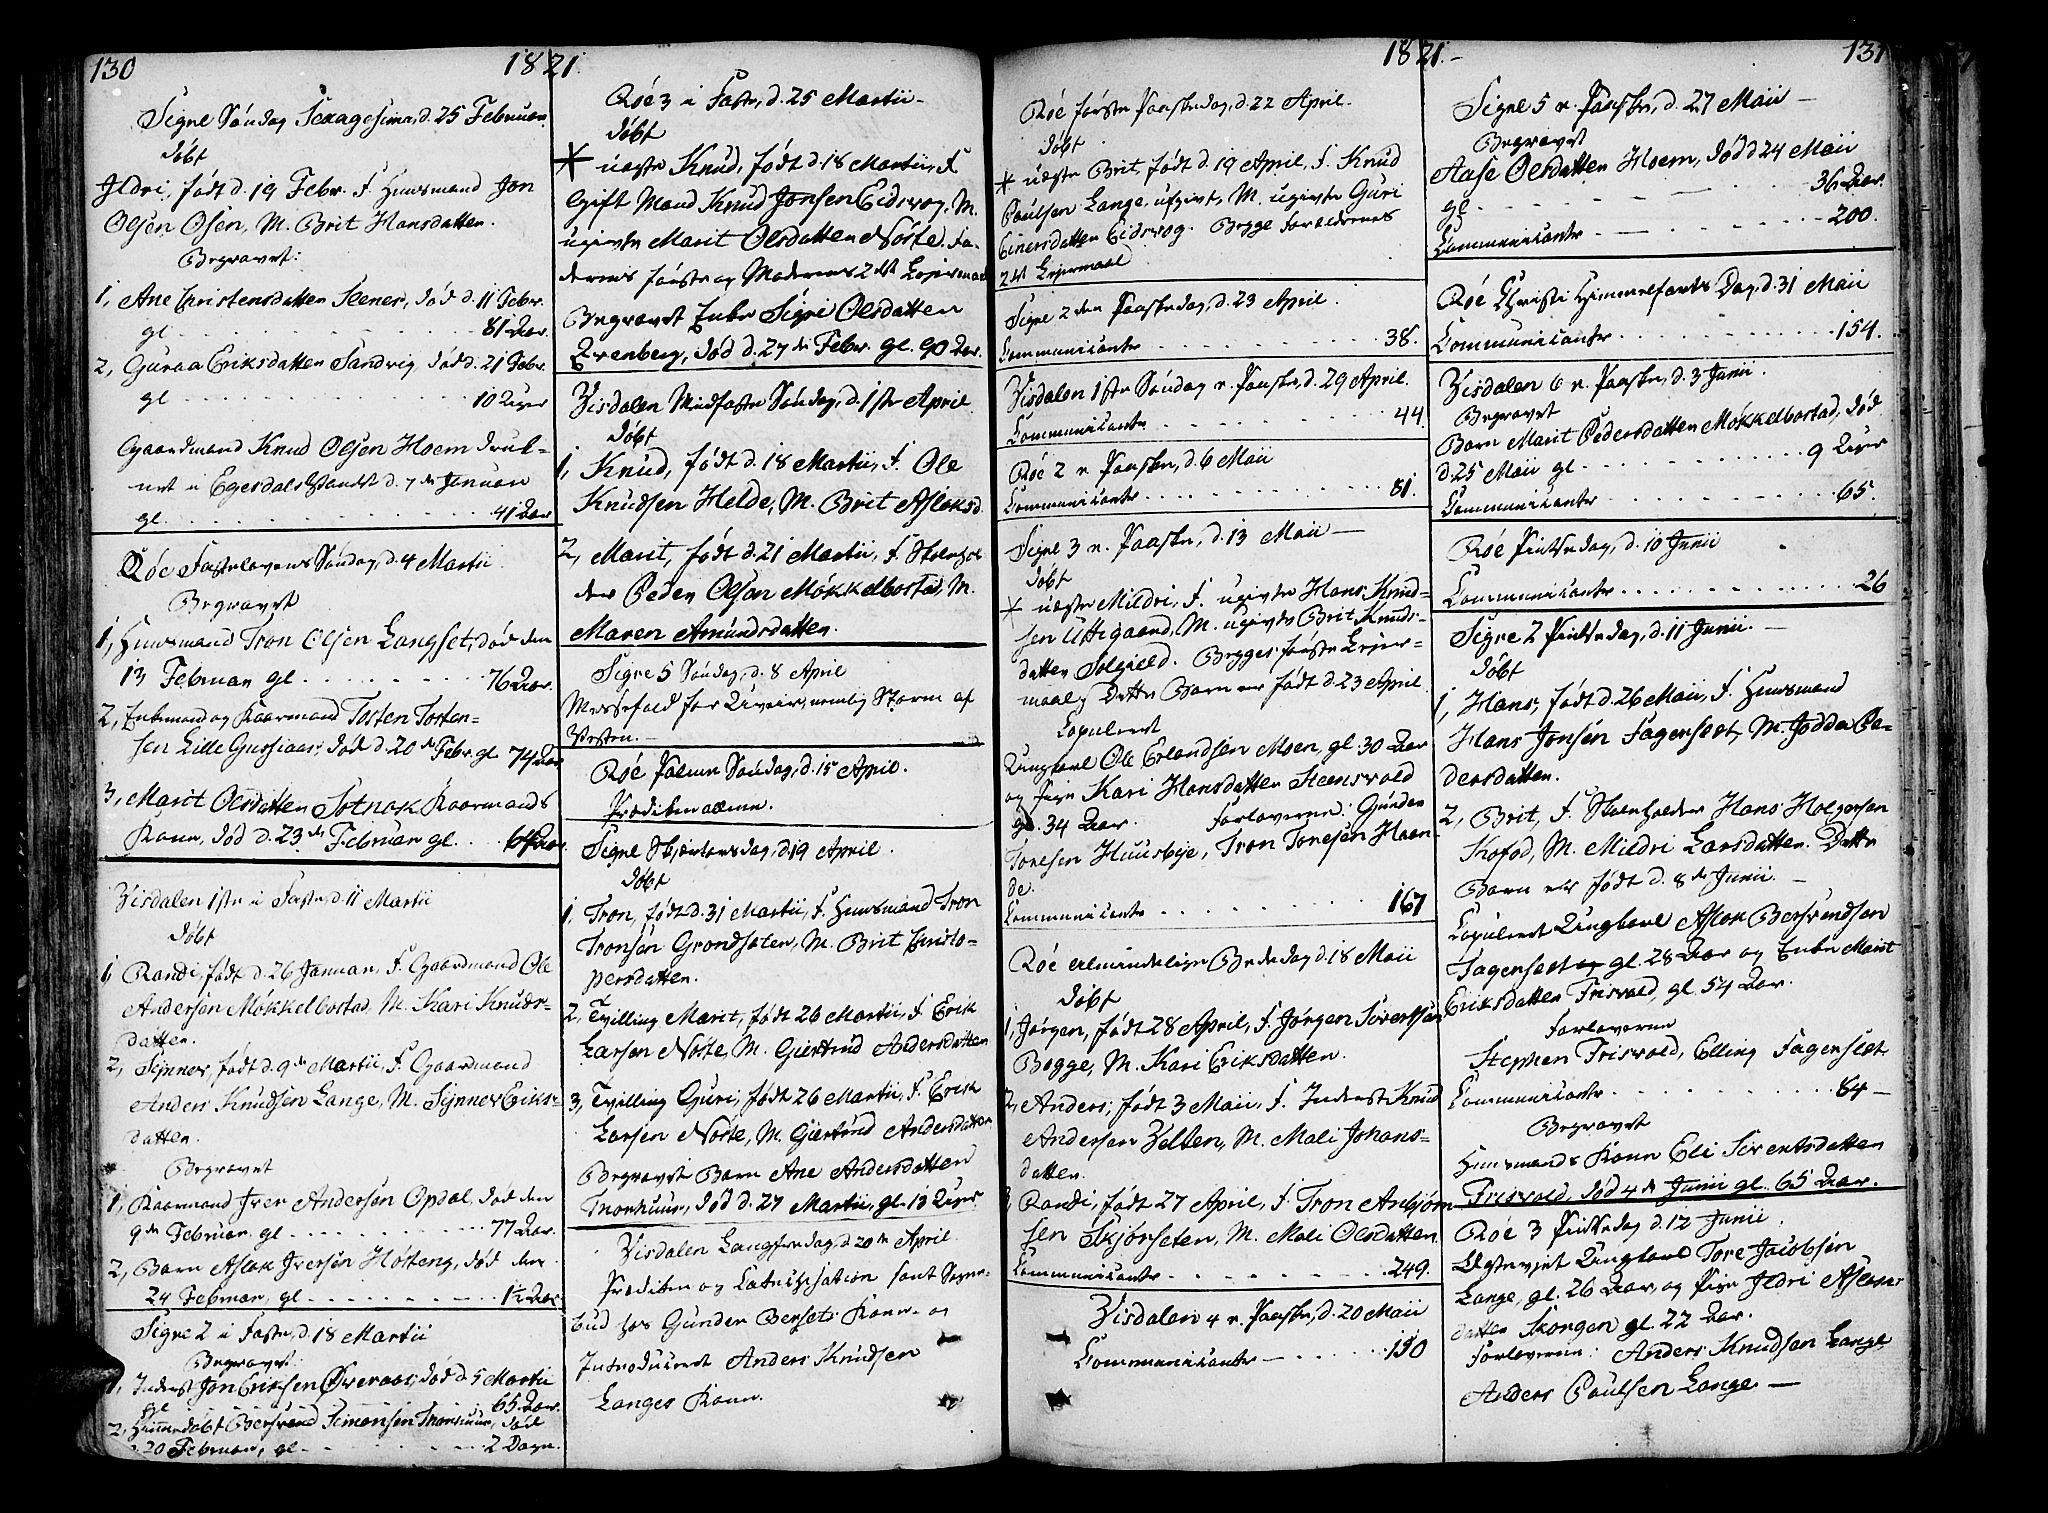 130
1821.
Signe Søndag Sexagesima, d. 25 Februari
døbt
Ildri, født d. 19 Febr. F. Huusmand Jon
Olsen Osen, M. Brit Hansdatten.
Begravet:
1, Ane Christensdatten Scenes, død d. 11 Febr.
gl. 81 Aar.
2, Guraa Eriksdatten Sandvig død d. 21 Febr.
gl 10 Uger
Gaardmand Knud Olsen Hoem druk-
net i Egesdals Vandet d. 7de Januari
gl. 41 Aar
Røe Fastelavens Søndag, d. 4 Martii
Begravet
1, Huusmand Tron Olsen Langset, død den
13 Februari gl 76 Aar.
2, Enkemand og Kaarmand Torsten Torsten-
sen Lille Gussiaas, død d. 20de Febr. gl 74 Aar
3, Marit Olsdatten Solnok Kaarmands
Kone, død d. 23de Februari gl. 64 Aar
Visdalen 1ste i Faste, d. 11 Martii
døbt
1, Randi, født d. 26 Januari, F. Gaardmand Ole
Andersen Møkkelbostad, M. Kari Knuds-
datten.
2, Synnev, født d. 9de Martii, F. Gaardmand
Anders Knudsen Lange, M. Synnev Eriks-
datten.
Begravet
1, Kaarmand Iver Andersen Opdal, død den
9de Februari gl 77 Aar.
2, Barn Aslak Iversen Høsteng, død den
24 Februari, gl 1½ Aar
Signe 2 i Faste, d. 18 Martii
Begravet:
1, Inderst Jon Eriksen Øveraas, død d. 5 Martii
gl 65 Aar.
2, Hiemedøbt Bersvend Simonsen Thorhuus, død
d. 20 Februari, gl 2 Dage.
Røe 3 i Faste, d. 25 Martii
døbt
* uægte Knud, født d. 18 Martii, F.
Gift Mand Knud Jonsen Eidsvog, M.
ugivte Marit Olsdatten Nøste. Fa-
derens første og Moderens 2det Leiermaal
Begravet Enke Sigri Olsdatten
Ørenberg, død d. 27de Febr. gl. 90 Aar.
Visdalen Midfaste Søndag, d. 1ste April
døbt
1, Knud, født d. 18 Martii, F. Ole
Knudsen Helde, M. Brit Aslaksd.
2, Marit, født d. 21 Martii, F. Skoehol-
der Peder Olsen Møkkelbostad, M.
Maren Amundsdatten.
Signe 5 Søndag, d. 8 April
Messefald for Uveir, nemlig Storm af
Vesten.
Røe Palme Søndag, d. 15 April.
Prædiken allene.
Signe Skjærtorsdag, d. 19 April.
døbt
1, Tron, født d. 31 Martii, F. Huusmand Tron
Tronsen Grondseten, M. Brit Christo-
persdatten.
2, Tvilling Marit, født 26 Martii, F. Erik
Larsen Nøste, M. Giertrud Andersdatten
3, Tvilling Guri, født 26 Martii, F. Erik
Larsen Nøste, M. Giertrud Andersdatten
Begravet Barn Ane Andersdatten
Thorhuus, død d. 27 Martii, gl. 13 Uger
Visdalen Langfredag, d. 20de April.
Prædiken og Catechisation samt Sogne-
bud hos Gunder Bersets Kone og
Introduceret Anders Knudsen
Langes Kone.
1821.
131
Røe første Paaskedag, d. 22 April.
døbt
* uægte Brit, født d. 19 April, F. Knud
Paulsen Lange, ufgivt, M. ugivte Guri
Einersdatten Eidsvog. Begge Forældrenes
2det Leiermaal
Signe 2den Paaskedag, d. 23 April.
Communicanter 38.
Visdalen 1ste Søndag e. Paaske, d. 29 April.
Communicanter 44
Røe 2 e. Paaske, d. 6 Maii
Communicanter 81.
Signe 3 e. Paaske, d. 13 Maii
døbt
* uægte Mildri, F. ugivte Hans Knud-
sen Uttigaard, M. ugivte Brit Knuds-
datten Solgield. Begges første Leier-
maal, Dette Barn er født d. 23 April
Copuleret
Ungkarl Ole Erlandsen Moen, gl. 30 Aar
og Pige Kari Hansdatten Steensvold
gl. 34 Aar. Forloverne: Gunder
Toresen Huusbye, Tron Toresen Haan-
de.
Communicanter 167
Røe almindelige Bededag d. 18 Maii
døbt
1, Jørgen, født 28 April, F. Jørgen Sivertsen
Bogge, M. Kari Eriksdatten.
2, Anders, født 3 Maii, F. Inderst Knud
Andersen Velten, M. Mali Johans-
datten
3, Randi, født 27 April, F. Tron Anbjørn-
sen Skjørseten, M. Mali Olsdatten
Communicanter 249.
Visdalen 4 e. Paaske, d. 20 Maii
Communicanter 130
Signe 5 e. Paaske, d. 27 Maii
Begravet
Aase Olsdatten Hoem, død 24 Maii
gl. 36 Aar.
Communicanter 200.
Røe Christi Himmelfarts Dag, d. 31 Maii
Communicanter 154.
Visdalen 6 e. Paaske, d. 3 Junii.
Begravet
Barn Marit Pedersdatten Møkkelbostad, død
d. 25 Maii gl. 9 Uger
Communicanter 65.
Røe Pintsedag, d. 10 Junii
Communicanter 26
Signe 2 Pintsedag, d. 11 Junii.
døbt
1, Hans, født d. 26 Maii, F. Huusmand
Hans Jonsen Fagerslet, M. Jødda Pe-
dersdatten.
2, Brit, F. Skoeholder Hans Holgersen
Kofod, M. Mildri Larsdatten. Dette
Barn er født d. 8de Junii.
Copuleret Ungkarl Aslak Bersvendsen
Fagerslet og gl. 28 Aar og Enke Marit
Eriksdatten Trisvold, gl. 54 Aar.
Forloverne
Stephen Trisvold, Elling Fagerslet
Communicanter 84
Begravet
Huusmands Kone Eli Sivertsdatten
Trisvold, død 4de Junii gl. 65 Aar.
Røe 3 Pintsedag d. 12 Junii.
Ægteviet Ungkarl Tore Jacobsen
Lange, gl. 26 Aar, og Pige Ildri Aslaks-
datten Skorgen gl. 22 Aar.
Forloverne: Anders Knudsen Lange
Anders Paulsen Lange